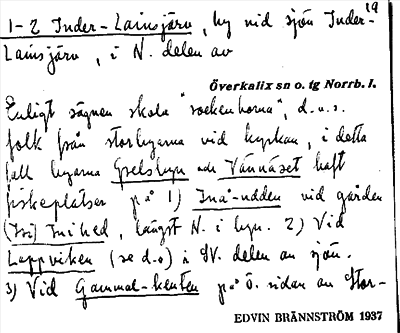 19
1-2 Inder-Lainsjärv, by vid sjön Inder-
Lainsjärv, i N. delen av
Överkalix sn o. tg Norrb. l.
Enligt sägnen skola "sockenborna", d.v.s.
folk från storbyarna vid kyrkan, i detta
fall byarna Grelsbyn och Vännäset haft
fiskeplatser på 1) Inå-udden vid gården
Inihed, längst N. i byn. 2) Vid
Lappviken (se d.o) i SV. delen av sjön.
3) Vid Gammel-kenten på Ö. sidan av Stor-
EDVIN BRÄNNSTRÖM 1937